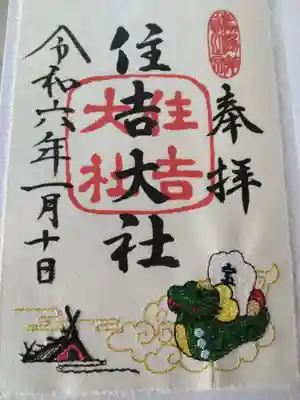 奉拝
住吉大社
住吉大社
令和六年一月十日
宝